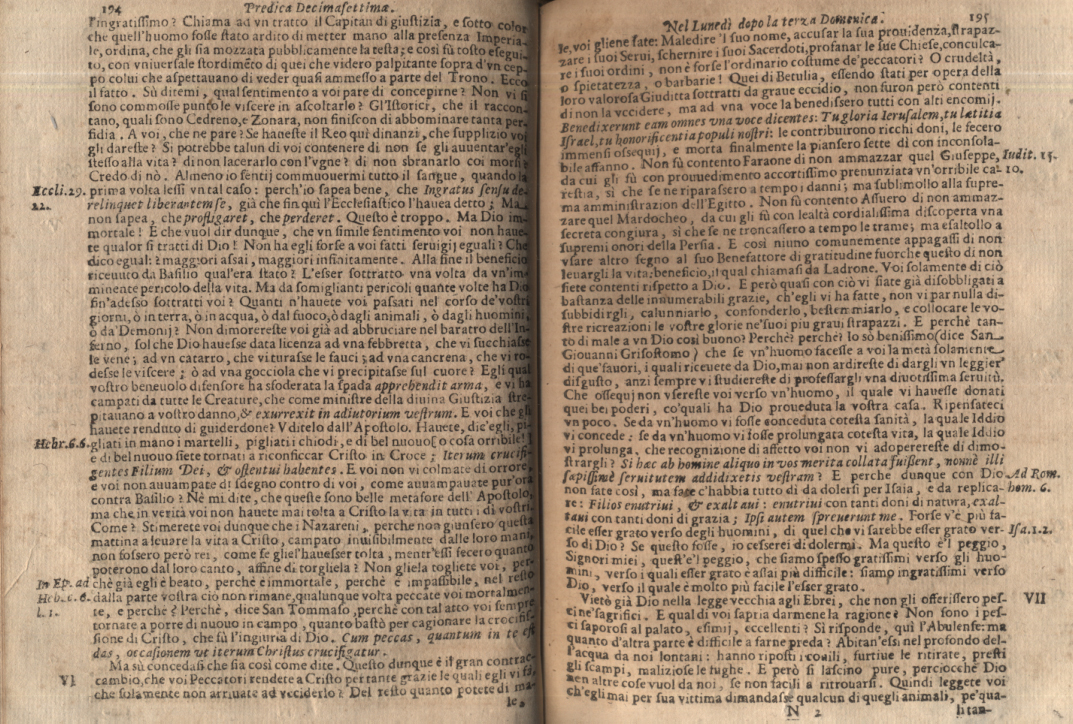 194 Predica Decimasettima.
l'ingratissimo? Chiama ad vn tratto il Capitan di giustizia, e sotto color
che quell'huomo fosse stato ardito di metter mano alla presenza Imperia-
le, ordina, che gli sia mozzata pubblicamente la testa; e così fù tosto esegui-
to, con vniuersale stordimẽto di quei che videro palpitante sopra d'vn cep-
po colui che aspettauano di veder quasi ammesso a parte del Trono. Ecco
il fatto. Sù ditemi, qual sentimento a voi pare di concepirne? Non vi si
sono commosse punto le viscere in ascoltarlo? Gl'Istorici, che il raccon-
tano, quali sono Cedreno, e Zonara, non finiscon di abbominare tanta per-
fidia. A voi, che ne pare? Se haueste il Reo quì dinanzi, che supplizio voi
gli dareste? Si potrebbe talun di voi contenere di non se gli auuentar'egli
stesso alla vita? di non lacerarlo con l'vgne? di non sbranarlo coi morsi?
Credo di nò. Almeno io sentij commouermi tutto il sangue, quando la
Eccli.29. prima volta lessi vn tal caso: perch'io sapea bene, che Ingratus sensu de-
22. relinquet liberantem se, già che fin quì l'Ecclesiastico l'hauea detto; Ma
non sapea, che profligaret, che perderet. Questo è troppo. Ma Dio im-
mortale! E che vuol dir dunque, che vn simile sentimento voi non haue-
te qualor si tratti di Dio! Non ha egli forse a voi fatti seruigij eguali? Che
dico egual: ? maggiori assai, maggiori infinitamente. Alla fine il beneficio
riceuuto da Basilio qual'era stato? L'esser sottratto vna volta da vn'im-
minente pericolo della vita. Ma da somiglianti pericoli quante volte ha Dio
fin'adesso sottratti voi? Quanti n'hauete voi passati nel corso de'vostri
giorni, ò in terra, ò in acqua, ò dal fuoco, ò dagli animali, ò dagli huomini,
ò da'Demonij? Non dimorereste voi già ad abbruciare nel baratro dell'In-
ferno, sol che Dio hauesse data licenza ad vna febbretta, che vi succhiasse
le vene; ad vn catarro, che vi turasse le fauci; ad vna cancrena, che vi ro-
desse le viscere; ò ad vna gocciola che vi precipitasse sul cuore? Egli qual
vostro beneuolo difensore ha sfoderata la spada apprehendit arma, e vi ha
campati da tutte le Creature, che come ministre della diuina Giustizia stre-
pitauano a vostro danno, & exurrexit in adiutorium vestrum. E voi che gli
hauete renduto di guiderdone? Vditelo dall'Apostolo. Hauete, dic'egli, pi-
Hebr.6.6. gliati in mano i martelli, pigliati i chiodi, e di bel nuouo[o cosa orribile!]
e di bel nuouo siete tornati a riconficcar Cristo in Croce; Iterum crucifi-
gentes Filium Dei, & ostentui habentes. E voi non vi colmate di orrore,
e voi non auuampate di sdegno contro di voi, come auuampauate pur'ora
contra Basilio? Nè mi dite, che queste sono belle metafore dell' Apostolo,
ma che in verità voi non hauete mai tolta a Cristo la vita in tutti i dì vostri.
Come? Stimerete voi dunque che i Nazareni, perche non giunsero questa
mattina a leuare la vita a Cristo, campato inuisibilmente dalle loro mani,
non fossero però rei, come se gliel'hauesser tolta, mentr'essi fecero quanto
poterono dal loro canto, affine di torgliela? Non gliela togliete voi, per-
In Ep. ad chè già egli è beato, perchè è immortale, perchè è impassibile, nel resto
Hebr.c.6. dalla parte vostra ciò non rimane, qualunque volta peccate voi mortalmen-
l.1. te, e perchè? Perchè, dice San Tommaso, perchè con tal atto voi sempre
tornate a porre di nuouo in campo, quanto bastò per cagionare la crocifis-
sione di Cristo, che fù l'ingiuria di Dio. Cum peccas, quantum in te est
das, occasionem vt iterum Christus crucifigatur.
Ma sù concedasi che sia così come dite. Questo dunque è il gran contrac-
VI cambio, che voi Peccatori rendete a Cristo per tante grazie le quali egli vi fà,
che solamente non arriuate ad vcciderlo? Del resto quanto potete di ma-
le,
Nel Lunedì dopo la terza Domenica. 195
le, voi gliene fate: Maledire 'l suo nome, accusar la sua prouidenza, strapaz-
zare i suoi Serui, schernire i suoi Sacerdoti, profanar le sue Chiese, conculca-
re i suoi ordini, non è forse l'ordinario costume de'peccatori? O crudeltà,
o spietatezza, o barbarie! Quei di Betulia, essendo stati per opera della
loro valorosa Giuditta sottratti da graue eccidio, non furon però contenti
di non la vccidere, ma ad vna voce la benedissero tutti con alti encomij.
Benedixerunt eam omnes vna voce dicentes: Tu gloria Ierusalem, tu lætitia
Israel, tu honorificentia populi nostri: le contribuirono ricchi doni, le fecero
immensi ossequij, e morta finalmente la piansero sette dì con inconsola-
bile affanno. Non fù contento Faraone di non ammazzar quel Giuseppe, Iudit. 15.
da cui gli fù con prouuedimento accortissimo prenunziata vn'orribile ca- 10.
restia, sì che se ne riparassero a tempo i danni; ma sublimollo alla supre-
ma amministrazion dell'Egitto. Non fù contento Assuero di non ammaz-
zare quel Mardocheo, da cui gli fù con lealtà cordialissima discoperta vna
secreta congiura, sì che se ne troncassero a tempo le trame; ma esaltollo a
supremi onori della Persia. E così niuno comunemente appagassi di non
vsare altro segno al suo Benefattore di gratitudine fuorche questo di non
leuargli la vita: beneficio, il qual chiamasi da Ladrone. Voi solamente di ciò
siete contenti rispetto a Dio. E però quasi con ciò vi siate già disobbligati a
bastanza delle innumerabili grazie, ch'egli vi ha fatte, non vi par nulla di-
subbidirgli, calunniarlo, confonderlo, bestemmiarlo, e collocare le vo-
stre ricreazioni le vostre glorie ne'suoi piu graui strapazzi. E perchè tan-
to di male a vn Dio così buono? Perchè? perchè? Io sò benissimo(dice San
Giouanni Grisostomo) che se vn'huomo facesse a voi la metà solamente
di que'fauori, i quali riceuete da Dio, mai non ardireste di dargli vn leggier
disgusto, anzi sempre vi studiereste di professargli vna diuotissima seruitù.
Che ossequij non vsereste voi verso vn'huomo, il quale vi hauesse donati
quei bei poderi, co'quali ha Dio proueduta la vostra casa. Ripensateci
vn poco. Se da vn'huomo vi fosse conceduta cotesta sanità, la quale Iddio
vi concede; se da vn'huomo vi fosse prolungata cotesta vita, la quale Iddio
vi prolunga, che recognizione di affetto voi non vi adoperereste di dimo-
strargli? Si hæc ab homine aliquo in vos merita collata fuissent, nonnè illi
sæpissimè seruitutem addidixetis vestram? E perche dunque con Dio Ad Rom.
non fate così, ma fate c'habbia tutto dì da dolersi per Isaia, e da replica- hom. 6.
re: Filios enutriui, & exaltaui: enutriui con tanti doni di natura, exal-
taui con tanti doni di grazia; Ipsi autem spreuerunt me. Forse v'è più fa-
cile esser grato verso degli huomini, di quel che vi sarebbe esser grato ver- Isa.1.2.
so di Dio? Se questo fosse, io cesserei di dolermi. Ma questo è'l peggio,
Signori miei, quest'è'l peggio, che siamo spesso gratissimi verso gli huo-
mini, verso i quali esser grato è assai più difficile: siamo ingratissimi verso
Dio, verso il quale è molto più facile l'esser grato.
Vietò già Dio nella legge vecchia agli Ebrei, che non gli offerissero pes- VII
ci ne'sagrifici. E qual di voi sapria darmene la ragione? Non sono i pes-
ci saporosi al palato, esimij, eccellenti? Sì risponde, quì l'Abulense: ma
quanto d'altra parte è difficile a farne preda? Abitan'essi nel profondo del-
l'acqua da noi lontani: hanno riposti i couili, furtiue le ritirate, presti
gli scampi, maliziose le fughe. E però si lascino pure, perciocchè Dio
non altre cose vuol da noi, se non facili a ritrouarsi. Quindi leggete voi
ch'egli mai per sua vittima dimandasse qualcun di quegli animali, pe'qua-
N 2 li tan-